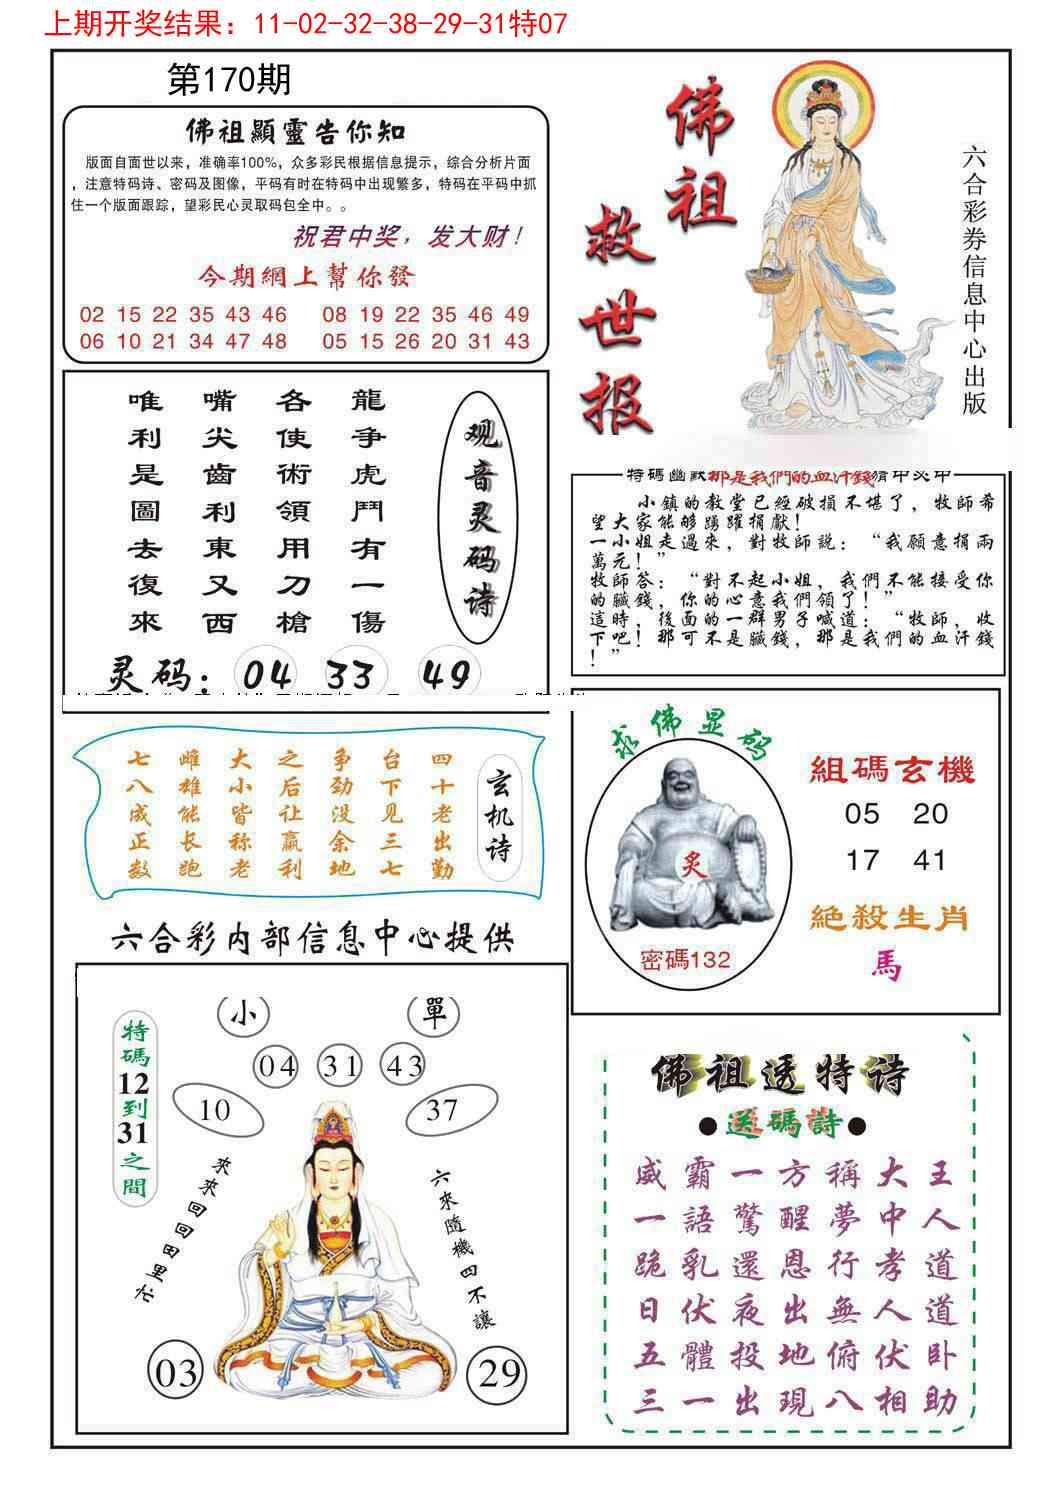 上期开奖结果：11-02-32-38-29-31特07
第170期
佛祖顯靈告你知
版面自面世以来，准确率100%，众多彩民根据信息提示，综合分析片面
，注意特码诗、密码及图像，平码有时在特码中出现繁多，特码在平码中抓
住一个版面跟踪，望彩民心灵取码包全中。。
祝君中奖，发大财！
今期網上幫你發
02 15 22 35 43 46 08 19 22 35 46 49
06 10 21 34 47 48 05 15 26 20 31 43
佛祖
救世报
六合彩券信息中心出版
观音灵码诗
龍争虎鬥有一傷
各使術領用刀槍
嘴尖齒利東又西
唯利是圖去復來
灵码：04 33 49
特碼幽默那是我們的血汗錢
小鎮的教堂已經破損不堪了，牧師希
望大家能够踴躍捐獻！
一小姐走過來，對牧師説：“我願意捐兩
萬元！”
牧師答：“對不起小姐，我們不能接受你
的臟錢，你的心意我們領了！”
這時，後面的一群男子喊道：“牧師，收
下吧！那可不是臟錢，那是我們的血汗錢
！”
玄机诗
四十老出勤
台下见三七
争劲没余地
之后让赢利
大小皆称老
雌雄能长跑
七八成正数
求佛显码
炙
密碼132
組碼玄機
05 20
17 41
絶殺生肖
馬
六合彩内部信息中心提供
特碼12到31之間
小 單
04 31 43
10 37
來來回回田里忙
六來隨機四不讓
03 29
佛祖透特诗
●送碼詩●
威霸一方稱大王
一語驚醒夢中人
跪乳還恩行孝道
日伏夜出無人道
五體投地俯伏卧
三一出現八相助